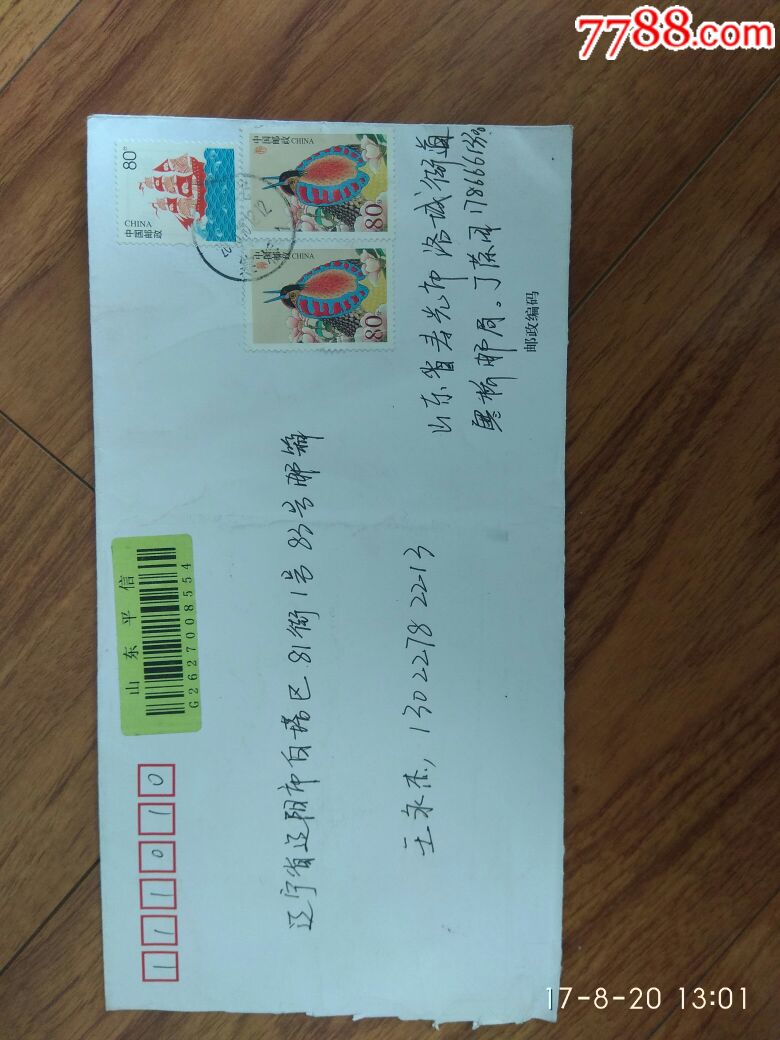 7788.com
111010
山东平信
G26270008554
80分
CHINA
中国邮政
中国邮政 CHINA
80分
中国邮政 CHINA
80分
辽宁省辽阳市白塔区81街1号83号邮箱
王永杰, 130 2278 2213
山东省寿光市洛城街道
邮局。丁
邮政编码
17-8-20 13:01